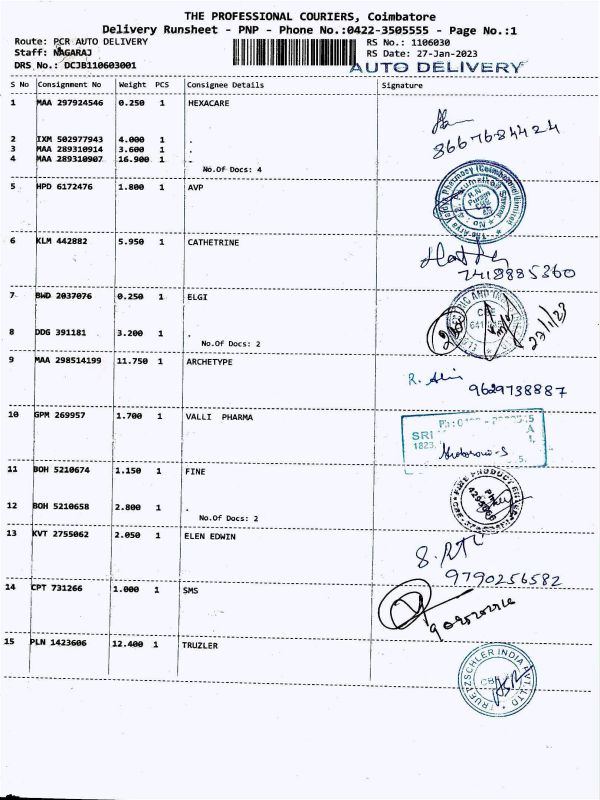 THE PROFESSIONAL COURIERS, Coimbatore
Delivery Runsheet - PNP - Phone No.:0422-3505555 - Page No.:1
Route: PCR AUTO DELIVERY RS No.: 1106030
Staff: NAGARAJ RS Date: 27-Jan-2023
DRS No.: DCJB110603001 AUTO DELIVERY
S No Consignment No Weight PCS Consignee Details Signature
1 MAA 297924546 0.250 1 HEXACARE
8667684424
2 IXM 502977943 4.000 1 .
3 MAA 289310914 3.600 1 .
4 MAA 289310907 16.900 1 .
No.Of Docs: 4
5 HPD 6172476 1.800 1 AVP
6 KLM 442882 5.950 1 CATHETRINE
7418885360
7 BWD 2037076 0.250 1 ELGI
27/1/23
8 DDG 391181 3.200 1 .
No.Of Docs: 2
9 MAA 298514199 11.750 1 ARCHETYPE
9629738887
10 GPM 269957 1.700 1 VALLI PHARMA
SRI
1823,
11 BOH 5210674 1.150 1 FINE
12 BOH 5210658 2.800 1 .
No.Of Docs: 2
13 KVT 2755062 2.050 1 ELEN EDWIN
9790256582
14 CPT 731266 1.000 1 SMS
15 PLN 1423606 12.400 1 TRUZLER
TRUETZSCHLER INDIA PVT. LTD